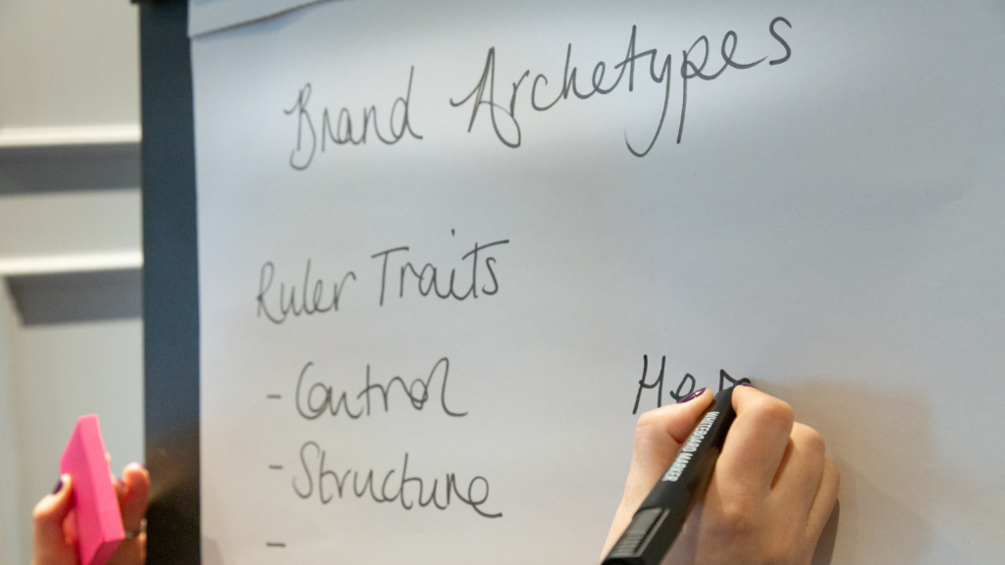 Brand Archetypes
Ruler Traits
- Control
- Structure
-
WHITEBOARD MARKER